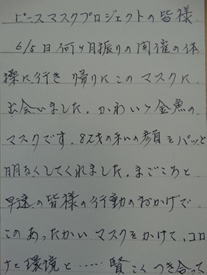 ピースマスクプロジェクトの皆様
6/5日 何ヶ月振りの開催の体
操に行き 帰りにこのマスクに
出会いました。かわいい金魚の
マスクです。82才の私の顔をパッと
明るくしてくれました。まごころと
早速の皆様の行動のおかげで
このあったかいマスクをかけて、コロ
ナと環境と……賢こくつき合って